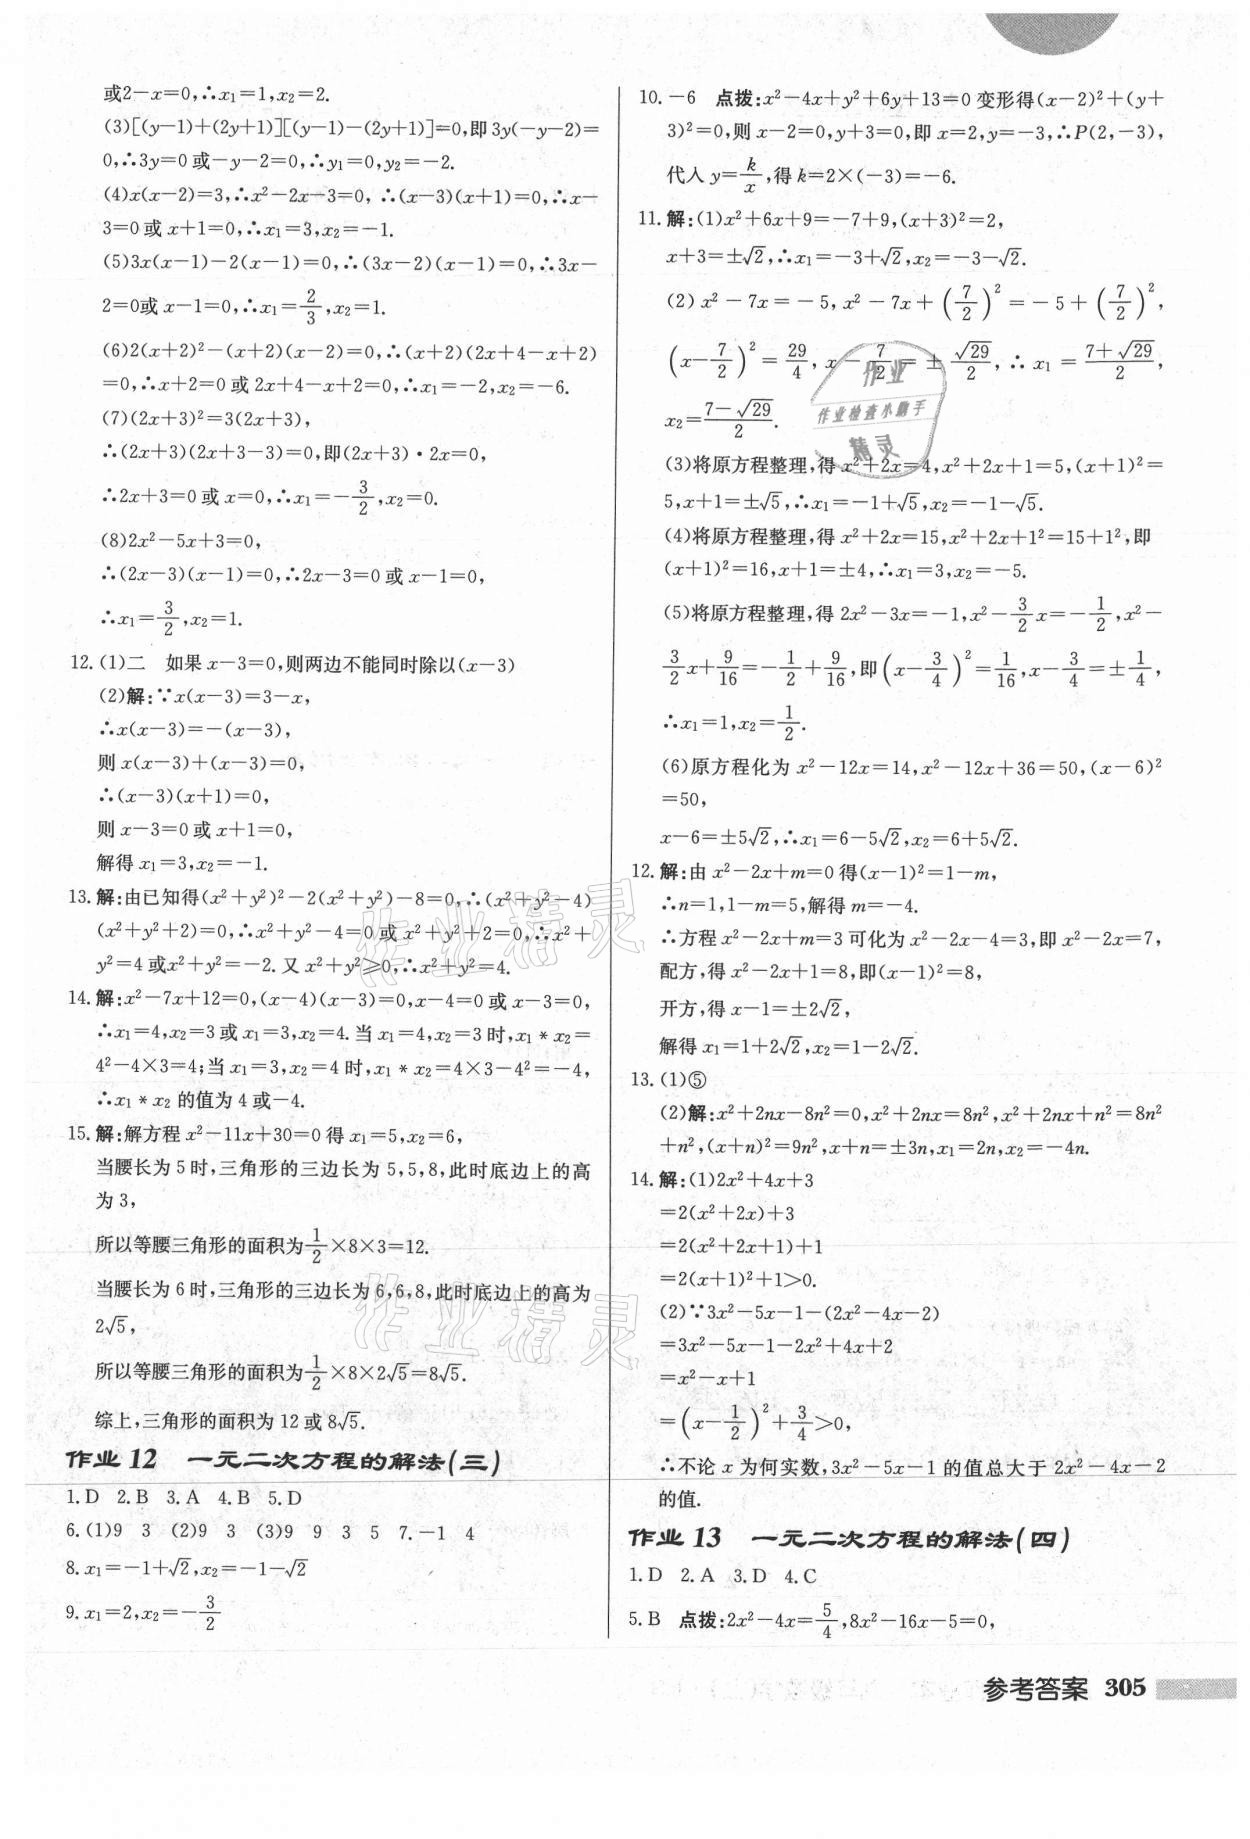 或2-x=0,∴x₁=1,x₂=2.
(3)[(y-1)+(2y+1)][(y-1)-(2y+1)]=0,即3y(-y-2)=
0,∴3y=0或-y-2=0,∴y₁=0,y₂=-2.
(4)x(x-2)=3,∴x²-2x-3=0,∴(x-3)(x+1)=0,∴x-
3=0或x+1=0,∴x₁=3,x₂=-1.
(5)3x(x-1)-2(x-1)=0,∴(3x-2)(x-1)=0,∴3x-
2=0或x-1=0,∴x₁=2/3,x₂=1.
(6)2(x+2)²-(x+2)(x-2)=0,∴(x+2)(2x+4-x+2)
=0,∴x+2=0或2x+4-x+2=0,∴x₁=-2,x₂=-6.
(7)(2x+3)²=3(2x+3),
∴(2x+3)(2x+3-3)=0,即(2x+3)·2x=0,
∴2x+3=0或x=0,∴x₁=-3/2,x₂=0.
(8)2x²-5x+3=0,
∴(2x-3)(x-1)=0,∴2x-3=0或x-1=0,
∴x₁=3/2,x₂=1.
12.(1)二 如果x-3=0,则两边不能同时除以(x-3)
(2)解:∵x(x-3)=3-x,
∴x(x-3)=-(x-3),
则x(x-3)+(x-3)=0,
∴(x-3)(x+1)=0,
则x-3=0或x+1=0,
解得x₁=3,x₂=-1.
13.解:由已知得(x²+y²)²-2(x²+y²)-8=0,∴(x²+y²-4)
(x²+y²+2)=0,∴x²+y²-4=0或x²+y²+2=0,∴x²+
y²=4或x²+y²=-2.又x²+y²≥0,∴x²+y²=4.
14.解:x²-7x+12=0,(x-4)(x-3)=0,x-4=0或x-3=0,
∴x₁=4,x₂=3或x₁=3,x₂=4.当x₁=4,x₂=3时,x₁*x₂=
4²-4×3=4;当x₁=3,x₂=4时,x₁*x₂=4×3-4²=-4,
∴x₁*x₂的值为4或-4.
15.解:解方程x²-11x+30=0得x₁=5,x₂=6,
当腰长为5时,三角形的三边长为5,5,8,此时底边上的高
为3,
所以等腰三角形的面积为1/2×8×3=12.
当腰长为6时,三角形的三边长为6,6,8,此时底边上的高为
2√5,
所以等腰三角形的面积为1/2×8×2√5=8√5.
综上,三角形的面积为12或8√5.
作业12 一元二次方程的解法(三)
1.D 2.B 3.A 4.B 5.D
6.(1)9 3 (2)9 3 (3)9 9 3 5 7.-1 4
8.x₁=-1+√2,x₂=-1-√2
9.x₁=2,x₂=-3/2
10.-6 点拨:x²-4x+y²+6y+13=0变形得(x-2)²+(y+
3)²=0,则x-2=0,y+3=0,即x=2,y=-3,∴P(2,-3),
代入y=k/x,得k=2×(-3)=-6.
11.解:(1)x²+6x+9=-7+9,(x+3)²=2,
x+3=±√2,∴x₁=-3+√2,x₂=-3-√2.
(2)x²-7x=-5,x²-7x+(7/2)²=-5+(7/2)²,
(x-7/2)²=29/4,x-7/2=±√29/2,∴x₁=(7+√29)/2,
x₂=(7-√29)/2.
(3)将原方程整理,得x²+2x=4,x²+2x+1=5,(x+1)²=
5,x+1=±√5,∴x₁=-1+√5,x₂=-1-√5.
(4)将原方程整理,得x²+2x=15,x²+2x+1²=15+1²,即
(x+1)²=16,x+1=±4,∴x₁=3,x₂=-5.
(5)将原方程整理,得2x²-3x=-1,x²-3/2x=-1/2,x²-
3/2x+9/16=-1/2+9/16,即(x-3/4)²=1/16,x-3/4=±1/4,
∴x₁=1,x₂=1/2.
(6)原方程化为x²-12x=14,x²-12x+36=50,(x-6)²
=50,
x-6=±5√2,∴x₁=6-5√2,x₂=6+5√2.
12.解:由x²-2x+m=0得(x-1)²=1-m,
∴n=1,1-m=5,解得m=-4.
∴方程x²-2x+m=3可化为x²-2x-4=3,即x²-2x=7,
配方,得x²-2x+1=8,即(x-1)²=8,
开方,得x-1=±2√2,
解得x₁=1+2√2,x₂=1-2√2.
13.(1)⑤
(2)解:x²+2nx-8n²=0,x²+2nx=8n²,x²+2nx+n²=8n²
+n²,(x+n)²=9n²,x+n=±3n,x₁=2n,x₂=-4n.
14.解:(1)2x²+4x+3
=2(x²+2x)+3
=2(x²+2x+1)+1
=2(x+1)²+1>0.
(2)∵3x²-5x-1-(2x²-4x-2)
=3x²-5x-1-2x²+4x+2
=x²-x+1
=(x-1/2)²+3/4>0,
∴不论x为何实数,3x²-5x-1的值总大于2x²-4x-2
的值.
作业13 一元二次方程的解法(四)
1.D 2.A 3.D 4.C
5.B 点拨:2x²-4x=5/4,8x²-16x-5=0,
参考答案 305
作业
作业检查小助手
精灵
作业精灵
作业精灵